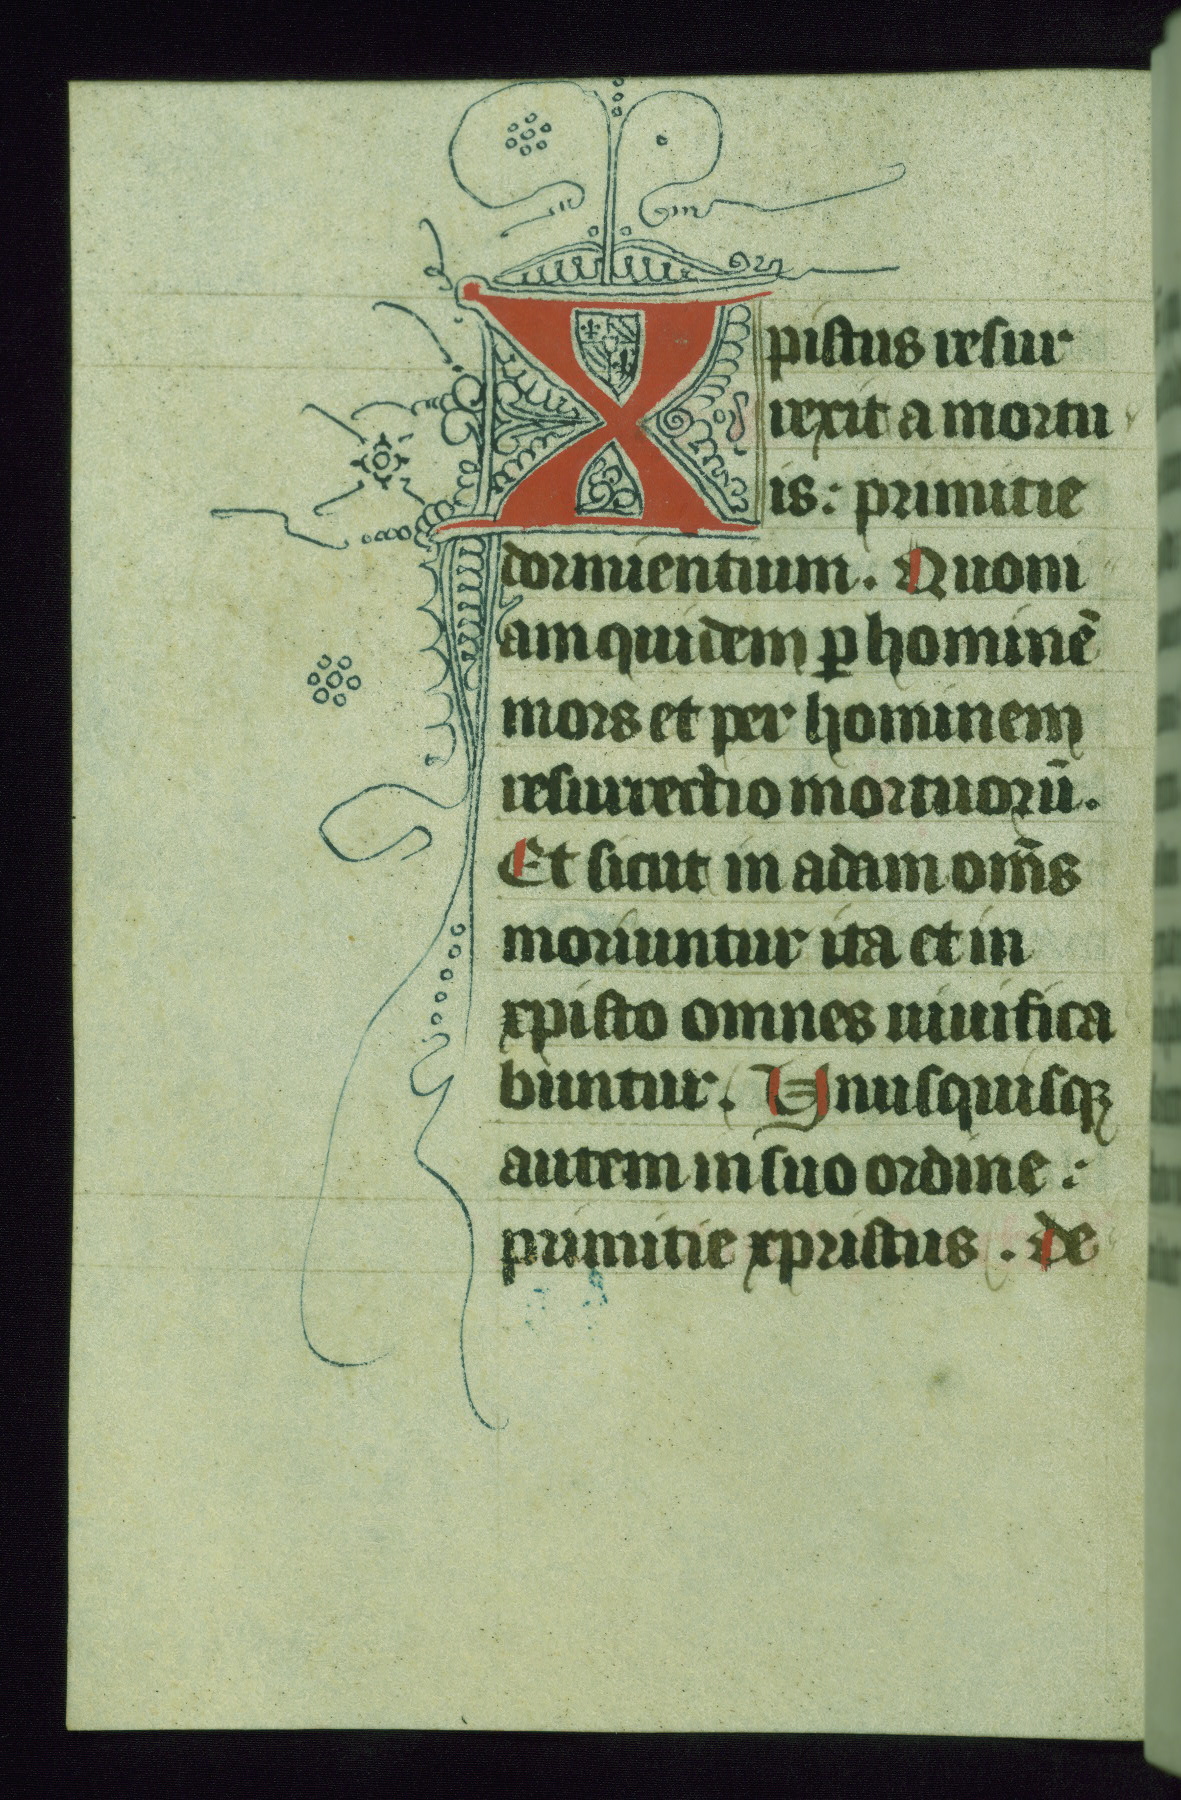 Xpistus resur
rexit a mortu
is: primitie
dormientium. Quoni
am quidem ꝑ hominē
mors et per hominem
resurrectio mortuorū.
Et sicut in adam om̄s
moriuntur ita et in
xpisto omnes uiuifica
buntur. Unusquisqꝫ
autem in suo ordine:
primitie xpristus. de